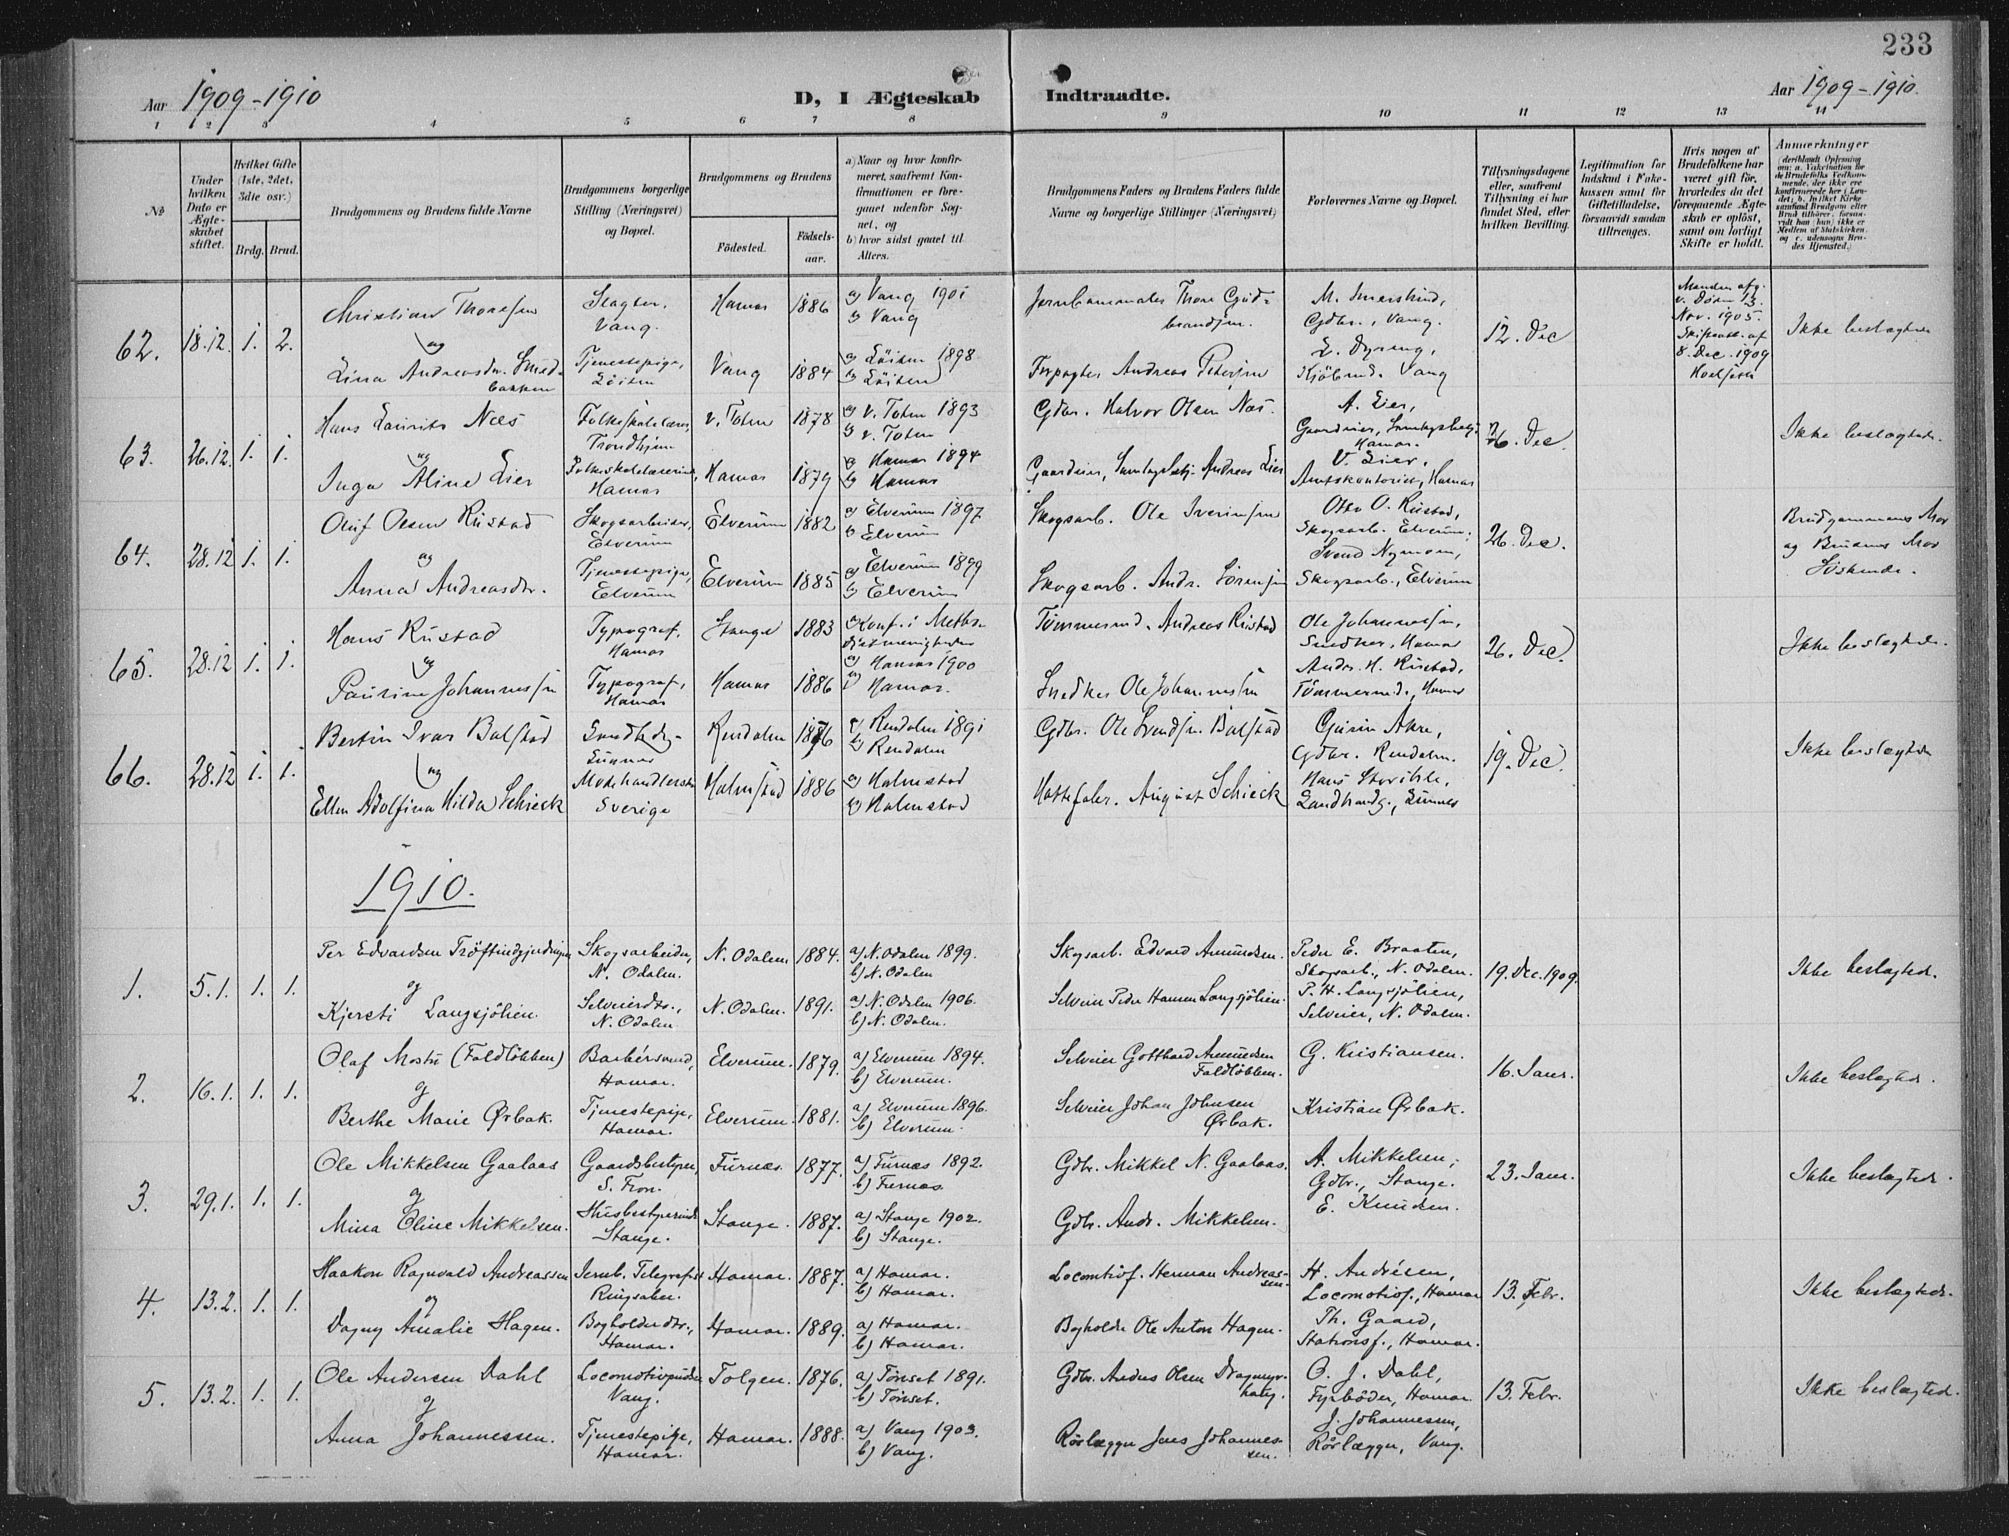 233
Aar 1909-1910
D, I Ægteskab Indtraadte.
Aar 1909-1910.
1 2 3 4 5 6 7 8 9 10 11 12 13 14
No
Under hvilken Dato er Ægteskabet stiftet.
Hvilket Gifte (1ste, 2det, 3die osv.)
Brdg. Brud.
Brudgommens og Brudens fulde Navne
Brudgommens borgerlige Stilling (Næringsvei) og Bopæl.
Brudgommens og Brudens
Fødested.
Fødselsaar.
a) Naar og hvor konfirmeret, saafremt Konfirmationen er foregaaet udenfor Sognet, og
b) hvor sidst gaaet til Alters.
Brudgommens Faders og Brudens Faders fulde Navne og borgerlige Stillinger (Næringsvei)
Forlovernes Navne og Bopæl.
Tillysningsdagene eller, saafremt Tillysning ei har fundet Sted, efter hvilken Bevilling.
Legitimation for Indskud i Enkekassen samt for Giftetilladelse, forsaavidt saadan tiltrænges.
Hvis nogen af Brudefolkene har været gift før, hvorledes da det foregaaende Ægteskab er opløst, samt om lovligt Skifte er holdt.
Anmærkninger
62. 18.12. 1. 2.
Christian Thoresen Slagter, Vang. Hamar 1886 a) Vang 1901 b) Vang
og
Lina Andreasdr. Smedbakken Tjenestepige, Löiten Vang 1884 a) Löiten 1898 b) Löiten
Thore Gudbrandsen.
Forpagter Andreas Petersen
Gdbr., Vang.
Vang
12. Dec
Manden afg. v. Døden 13. Nov. 1905. af 8. Dec. 1909
Ikke beslægtede
63. 26.12. 1. 1.
Hans Laurits Næs Folkeskolelærer, Trondhjem v. Toten 1878 a) v. Toten 1893 b) v. Toten
og
Inga Aline Lier Folkeskolelærerinde, Hamar Hamar 1879 a) Hamar 1894 b) Hamar
Gdbr. Halvor Olsen Næs.
Gaardeier, Andreas Lier
A. Lier,
Gaardeier, Hamar.
V. Lier,
Amtskontorist, Hamar
26. Dec
Ikke beslægtede.
64. 28.12 1. 1.
Oluf Olsen Rustad Skogsarbeider, Elverum Elverum 1882 a) Elverum 1897 b) Elverum
og
Anna Andreasdr. Tjenestepige, Elverum Elverum 1885 a) Elverum 1899 b) Elverum
Skogsarb. Ole Iversen
Skogsarb. Andr. Sörensen
Otto O. Rustad,
Skogsarb. Elverum.
Svend Nymoen,
Skogsarb., Elverum
26. Dec.
Brudgommens Mor og Brudens Mor Söskende.
65. 28.12 1. 1.
Hans Rustad Typograf, Hamar Stange 1883 a) Konf. i Methodistmenigheden
og
Pauline Johannessen Typograf, Hamar Hamar 1886 a) Hamar 1900 b) Hamar.
Tömmermd. Andreas Rustad
Snedker Ole Johannessen
Ole Johannessen,
Snedker, Hamar
Andr. H. Rustad,
Tömmermd., Hamar
26. Dec.
Ikke beslægtede.
66. 28.12 1. 1.
Bertin Ivar Balstad Landhdlg. Lunner Rendalen 1876 a) Rendalen 1891 b) Rendalen
og
Ellen Adolfina Hilda Schieck Modehandlerske Sverige Halmstad 1886 a) Halmstad b) Halmstad
Gdbr. Ole Svendsen Balstad
August Schieck
Gdbr. Rendalen.
Hans
Landhandl., Lunner
19. Dec.
Ikke beslægtede
1910.
1. 5.1. 1. 1.
Per Edvardsen Skogsarbeider, N. Odalen. N. Odalen 1884. a) N. Odalen 1899. b) N. Odalen
og
Kjersti Langsjölien. Selveierdtr., N. Odalen N. Odalen. 1891. a) N. Odalen 1906. b) N. Odalen.
Skogsarb. Edvard Amundsen.
Selveier Peder Hansen Langsjölien.
Peder E. Braaten,
Skogsarb., N. Odalen.
P. H. Langsjölien,
Selveier, N. Odalen.
19. Dec. 1909.
Ikke beslægted.
2. 16.1. 1. 1.
Olaf Mostu (Faldlöbben) Barbérsvend, Hamar. Elverum. 1879. a) Elverum 1894. b) Elverum.
og
Berthe Marie Ørbak. Tjenestepige, Hamar. Elverum. 1881. a) Elverum 1896. b) Elverum.
Selveier Gotthard Amundsen Faldlöbben.
Selveier Johan Johnsen Ørbak.
G. Kristiansen.
Kristian Ørbak.
16. Janr.
Ikke beslægted.
3. 29.1. 1. 1.
Ole Mikkelsen Gaalaas Gaardsbestyrer, S. Fron. Furnæs. 1877. a) Furnæs 1892. b) Furnæs
og
Mina Oline Mikkelsen. Husbestyrerinde Stange. Stange. 1887. a) Stange 1902. b) Stange.
Gdbr. Mikkel N. Gaalaas.
Gdbr. Andr. Mikkelsen.
A. Mikkelsen,
Gdbr., Stange.
E. Knudsen.
23. Janr.
Ikke beslægted.
4. 13.2. 1. 1.
Haakon Ragnvald Andreassen Jernb. Telegrafist Ringsaker. Hamar. 1887. a) Hamar. b) Hamar.
og
Dagny Amalie Hagen. Bogholderdtr., Hamar. Hamar. 1889. a) Hamar. b) Hamar.
Locomtivf. Herman Andreassen.
Bogholder Ole Anton Hagen.
H. Andrésen,
Locomotivf., Hamar
Th. Gaard,
Stationsf., Hamar.
13. Febr.
Ikke beslægted.
5. 13.2. 1. 1.
Ole Andersen Dahl Locomotivpudser Vang. Tolgen. 1876. a) Tönset 1891. b) Tönset.
og
Anna Johannessen. Tjenestepige, Hamar. Hamar. 1888. a) Vang 1903. b) Vang.
Gdbr. Anders Olsen
Rörlægger Jens Johannessen.
O. J. Dahl,
Fyrböder, Hamar
J. Johannessen,
Rörlægger, Vang.
13. Febr.
Ikke beslægted.